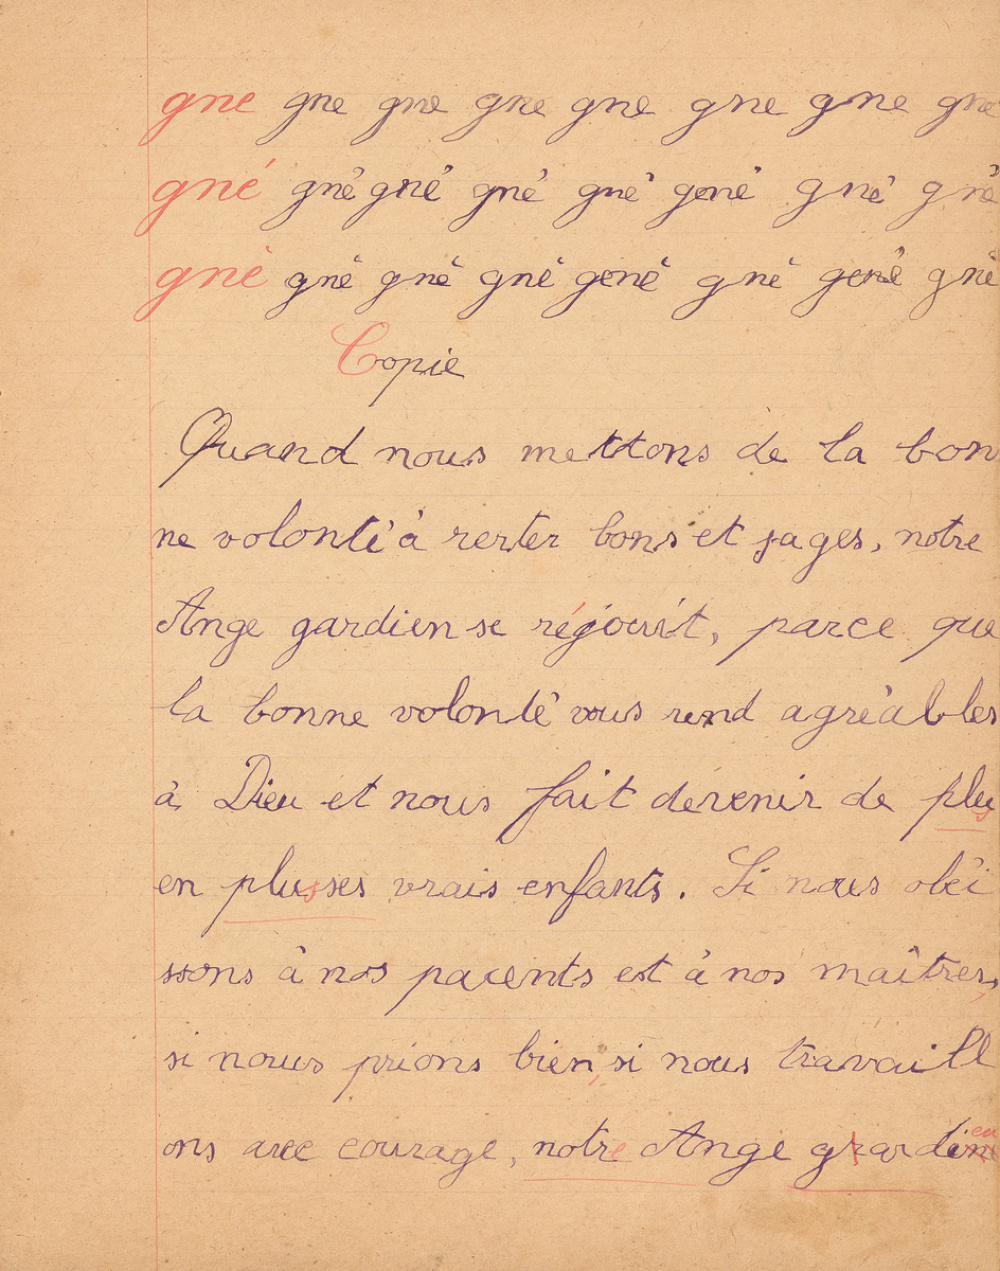 gne gne gne gne gne gne gne gne
gné gné gné gné gné gené gné gné
gné gné gné gné gené gné gené gné
Copie
Quand nous mettons de la bon
ne volonté à rester bons et sages, notre
Ange gardien se réjouit, parce que
la bonne volonté vous rend agréables
à Dieu et nous fait devenir de plus
en plusses vrais enfants. Si nous obéi
ssons à nos parents et à nos maîtres,
si nous prions bien, si nous travaill
ons avec courage, notre Ange grardien